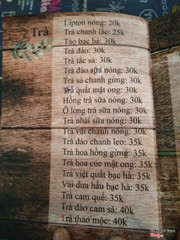 Lipton nóng: 20k
Trà chanh lắc: 25k
Trà
Táo bạc hà: 30k
Trà đào: 30k
Trà tắc sả: 30k
Trà đào sữa nóng: 30k
Trà sả chanh gừng: 30k
Trà quất mật ong: 30k
Hồng trà sữa nóng: 30k
Ô long trà sữa nóng: 30k
Trà nhài sữa nóng: 30k
Trà vải chanh nóng: 30k
Trà đào chanh leo: 35k
Trà hoa hồng gừng: 35k
Trà hoa cúc mật ong: 35k
Trà việt quất bạc hà: 35k
Vải dưa hấu bạc hà: 35k
Trà cam quế: 35k
Trà đào cam sả: 40k
Trà thảo mộc: 40k